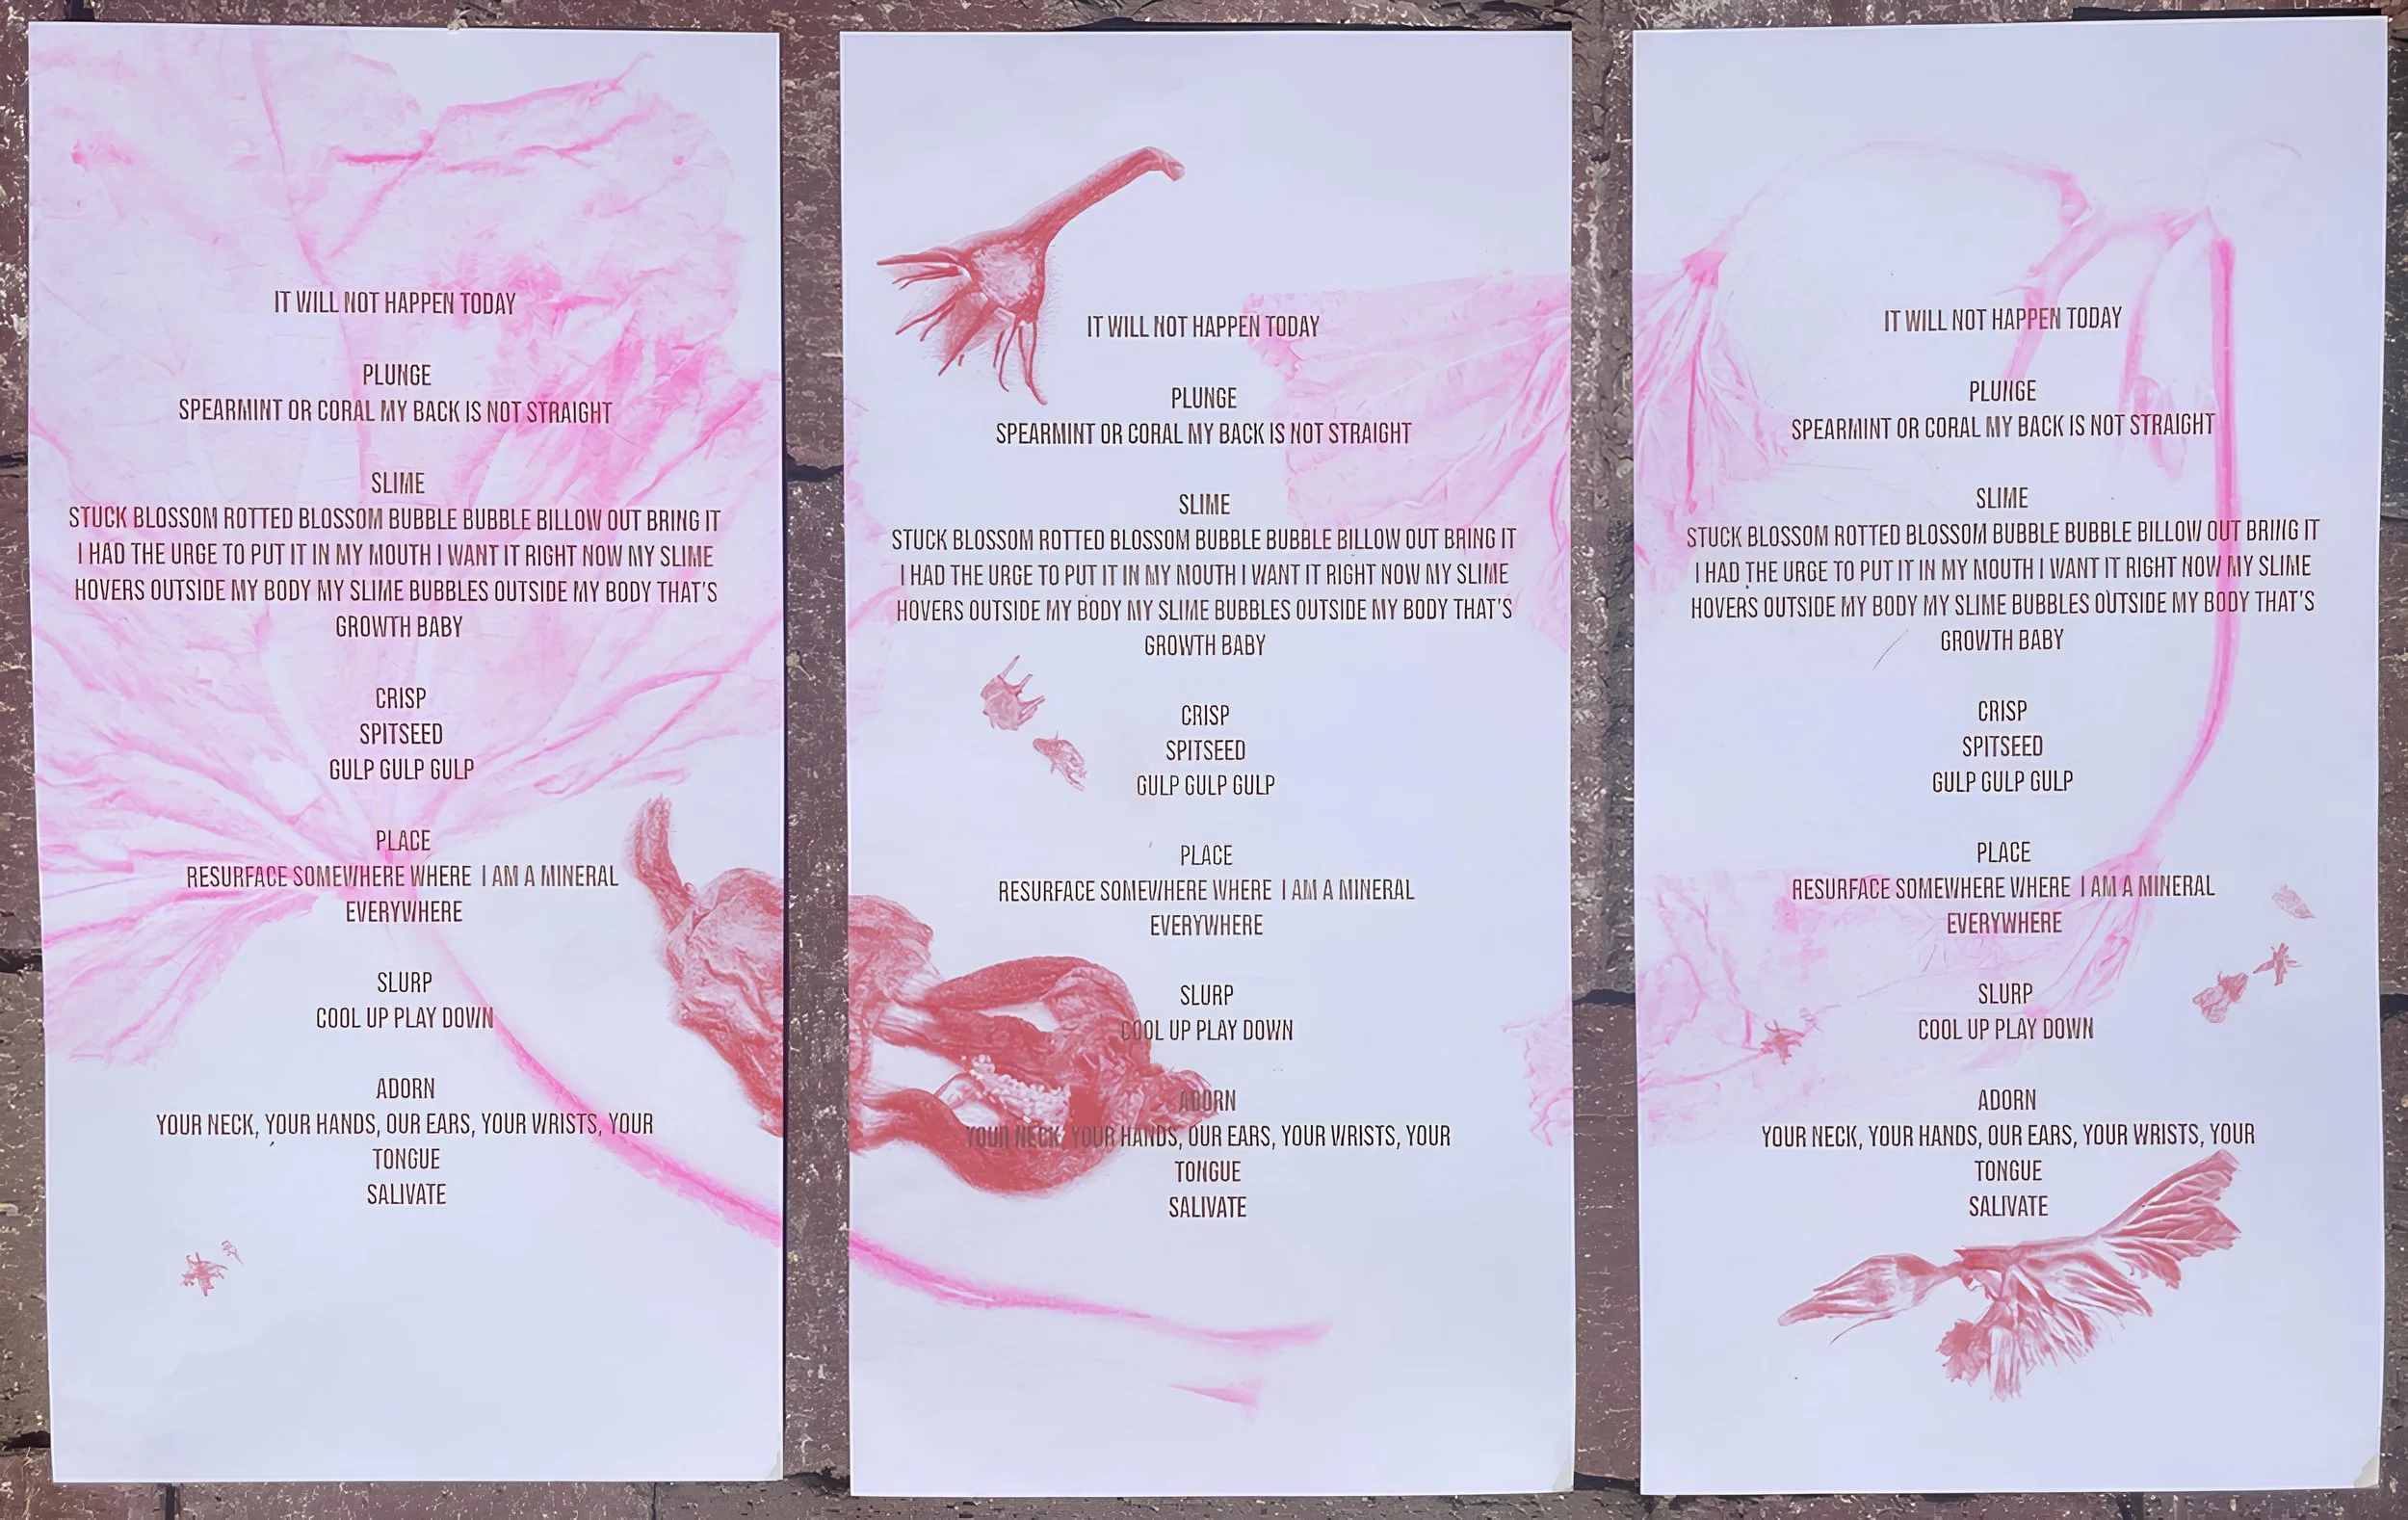 IT WILL NOT HAPPEN TODAY
PLUNGE
SPEARMINT OR CORAL MY BACK IS NOT STRAIGHT
SLIME
STUCK BLOSSOM ROTTED BLOSSOM BUBBLE BUBBLE BILLOW OUT BRING IT
I HAD THE URGE TO PUT IT IN MY MOUTH I WANT IT RIGHT NOW MY SLIME
HOVERS OUTSIDE MY BODY MY SLIME BUBBLES OUTSIDE MY BODY THAT'S
GROWTH BABY
CRISP
SPITSEED
GULP GULP GULP
PLACE
RESURFACE SOMEWHERE WHERE I AM A MINERAL
EVERYWHERE
SLURP
COOL UP PLAY DOWN
ADORN
YOUR NECK, YOUR HANDS, OUR EARS, YOUR WRISTS, YOUR
TONGUE
SALIVATE
IT WILL NOT HAPPEN TODAY
PLUNGE
SPEARMINT OR CORAL MY BACK IS NOT STRAIGHT
SLIME
STUCK BLOSSOM ROTTED BLOSSOM BUBBLE BUBBLE BILLOW OUT BRING IT
I HAD THE URGE TO PUT IT IN MY MOUTH I WANT IT RIGHT NOW MY SLIME
HOVERS OUTSIDE MY BODY MY SLIME BUBBLES OUTSIDE MY BODY THAT'S
GROWTH BABY
CRISP
SPITSEED
GULP GULP GULP
PLACE
RESURFACE SOMEWHERE WHERE I AM A MINERAL
EVERYWHERE
SLURP
COOL UP PLAY DOWN
ADORN
YOUR NECK, YOUR HANDS, OUR EARS, YOUR WRISTS, YOUR
TONGUE
SALIVATE
IT WILL NOT HAPPEN TODAY
PLUNGE
SPEARMINT OR CORAL MY BACK IS NOT STRAIGHT
SLIME
STUCK BLOSSOM ROTTED BLOSSOM BUBBLE BUBBLE BILLOW OUT BRING IT
I HAD THE URGE TO PUT IT IN MY MOUTH I WANT IT RIGHT NOW MY SLIME
HOVERS OUTSIDE MY BODY MY SLIME BUBBLES OUTSIDE MY BODY THAT'S
GROWTH BABY
CRISP
SPITSEED
GULP GULP GULP
PLACE
RESURFACE SOMEWHERE WHERE I AM A MINERAL
EVERYWHERE
SLURP
COOL UP PLAY DOWN
ADORN
YOUR NECK, YOUR HANDS, OUR EARS, YOUR WRISTS, YOUR
TONGUE
SALIVATE